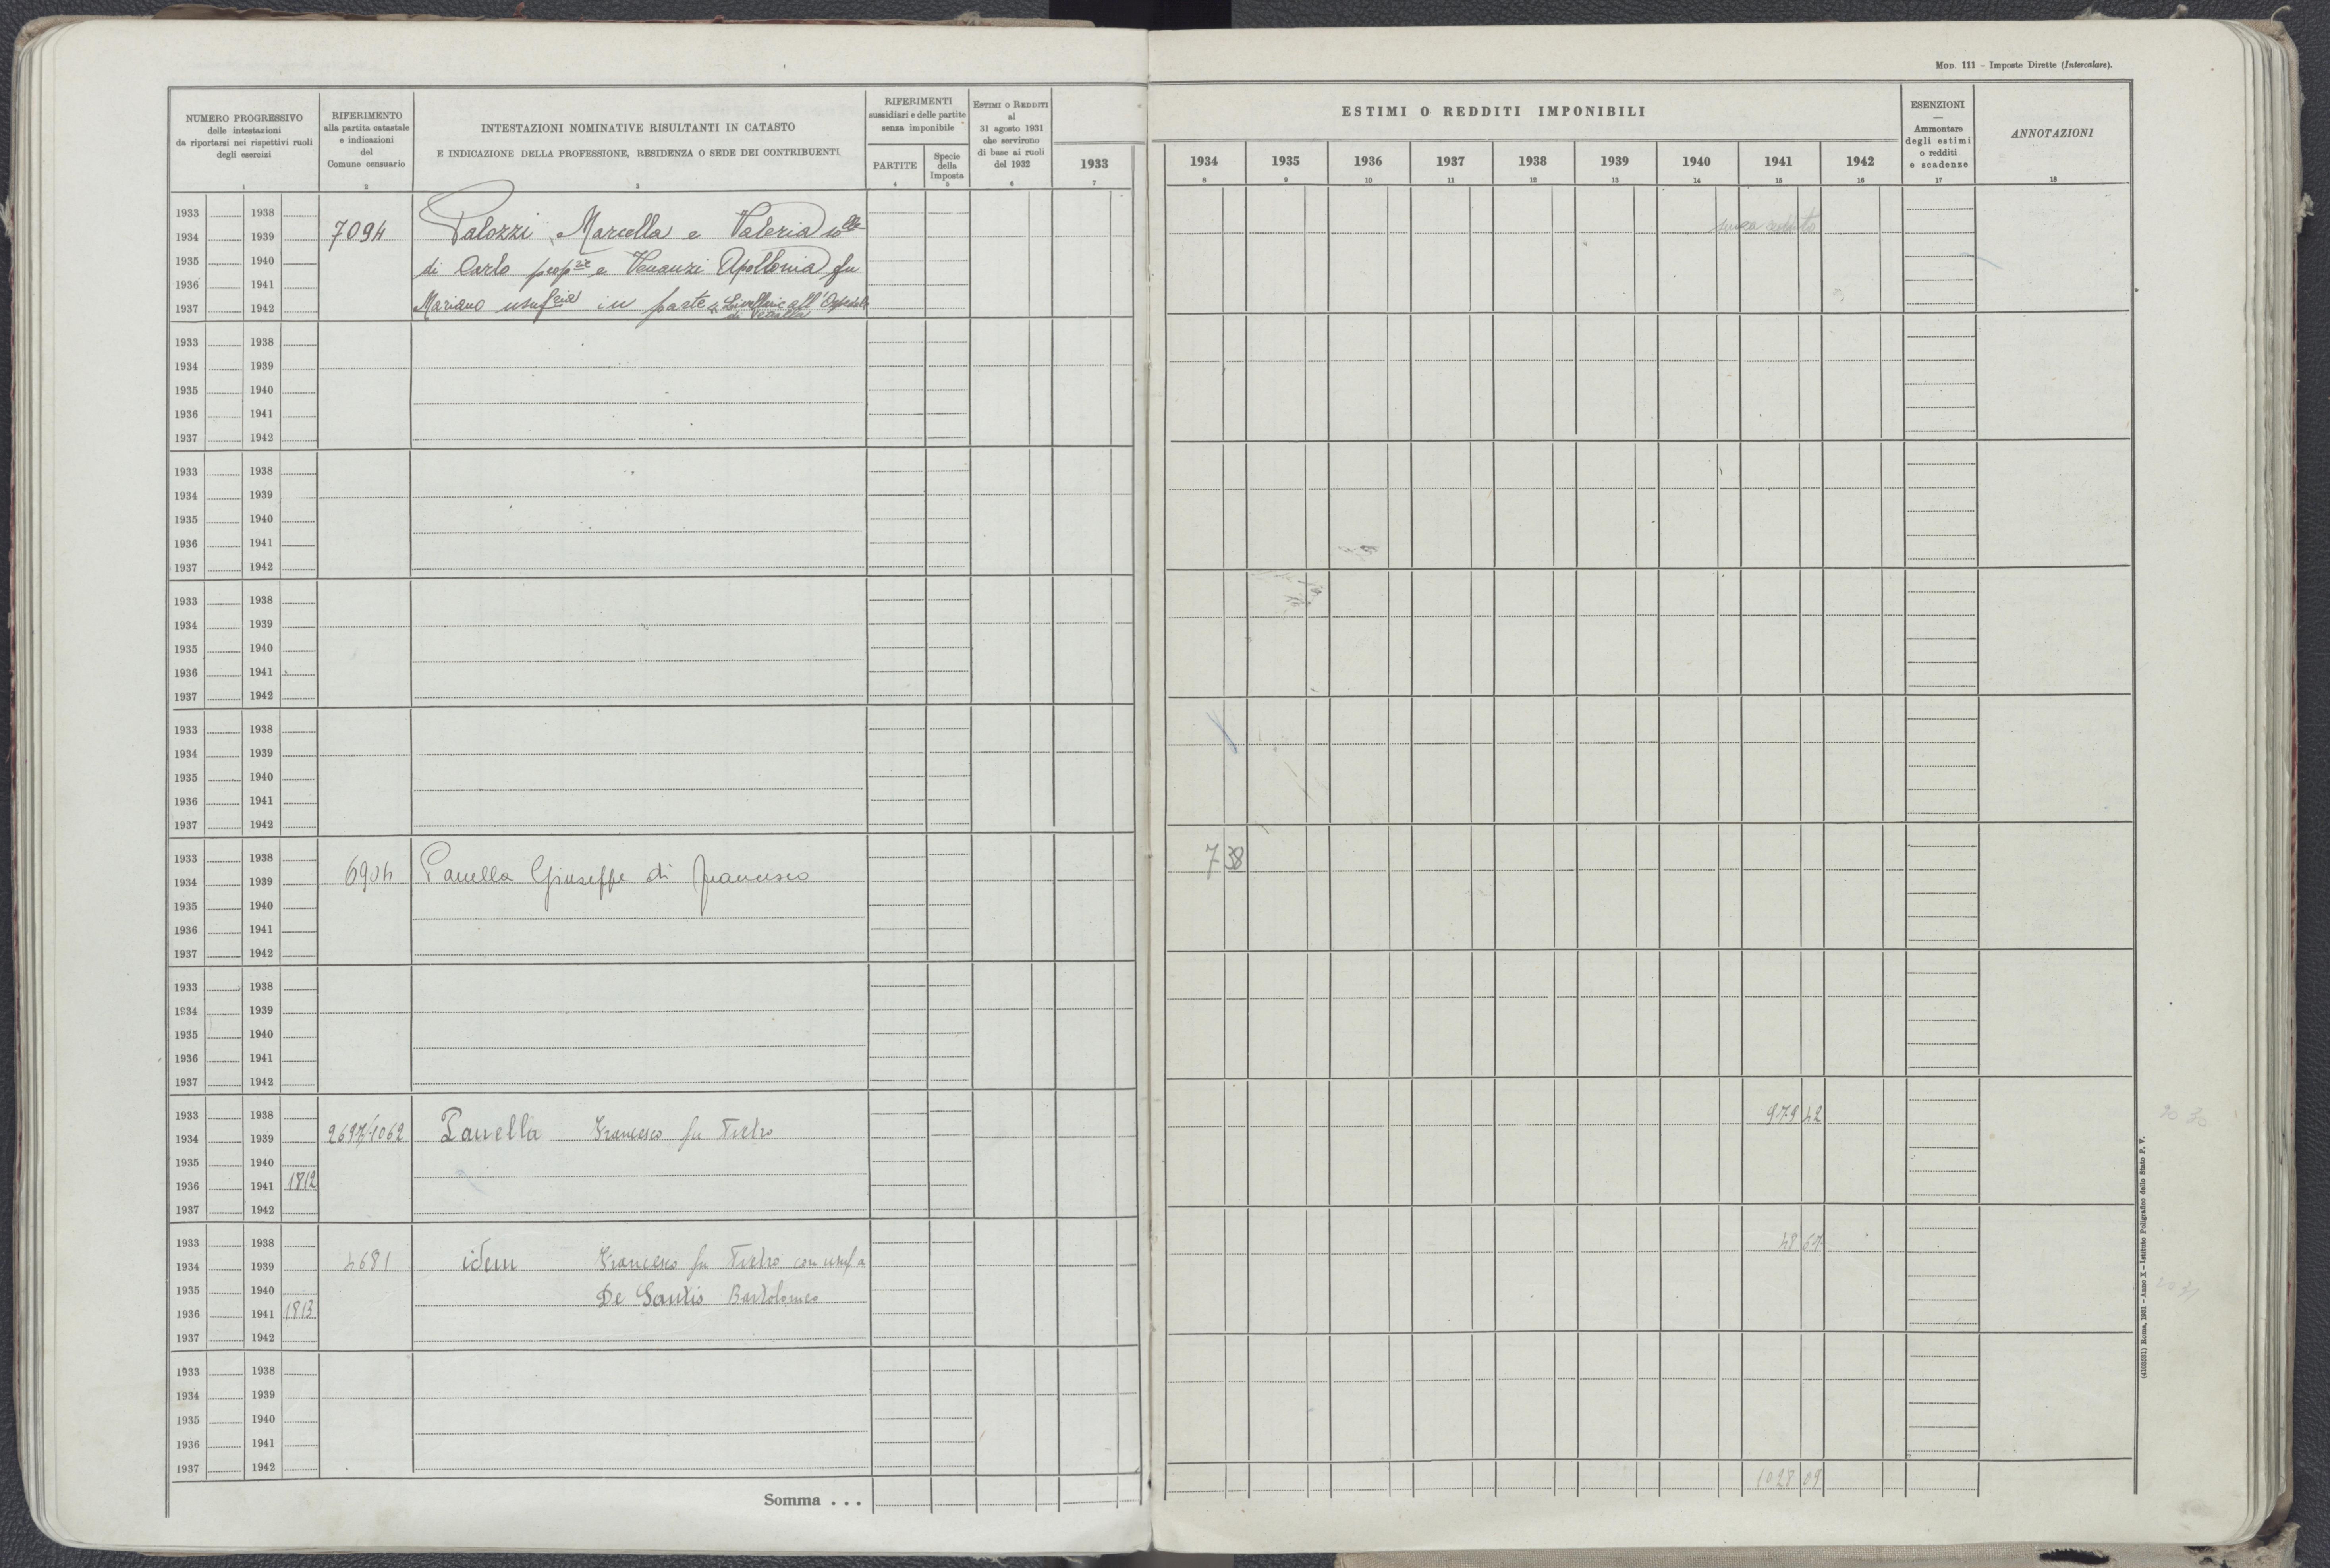 MOD. 111 – Imposte Dirette (Intercalare).
NUMERO PROGRESSIVO
delle intestazioni
da riportarsi nei rispettivi ruoli
degli esercizi
1
RIFERIMENTO
alla partita catastale
e indicazioni
del
Comune censuario
2
INTESTAZIONI NOMINATIVE RISULTANTI IN CATASTO
E INDICAZIONE DELLA PROFESSIONE, RESIDENZA O SEDE DEI CONTRIBUENTI
3
RIFERIMENTI
sussidiari e delle partite
senza imponibile
PARTITE
4
Specie
della
Imposta
5
ESTIMI O REDDITI
al
31 agosto 1931
che servirono
di base ai ruoli
del 1932
6
1933
7
ESTIMI O REDDITI IMPONIBILI
1934 1935 1936 1937 1938 1939 1940 1941 1942
8 9 10 11 12 13 14 15 16
ESENZIONI
—
Ammontare
degli estimi
o redditi
e scadenze
17
ANNOTAZIONI
18
1933 1938
1934 1939
1935 1940
1936 1941
1937 1942
7094
Palozzi Marcella e Valeria solle
di Carlo prop.rie e Venanzi Apollonia fu
Mariano usuf.cia in parte Livellarie all'Ospedale
di Vetralla
1933 1938
1934 1939
1935 1940
1936 1941
1937 1942
1933 1938
1934 1939
1935 1940
1936 1941
1937 1942
1933 1938
1934 1939
1935 1940
1936 1941
1937 1942
1933 1938
1934 1939
1935 1940
1936 1941
1937 1942
1933 1938
1934 1939
1935 1940
1936 1941
1937 1942
6904 Panella Giuseppe di Francesco 7 38
1933 1938
1934 1939
1935 1940
1936 1941
1937 1942
1933 1938
1934 1939
1935 1940
1936 1941 1812
1937 1942
2697/1062 Panella Francesco fu Pietro 979 42
1933 1938
1934 1939
1935 1940
1936 1941 1813
1937 1942
4681 idem Francesco fu Pietro con usuf a 48 67
De Santis Bartolomeo
1933 1938
1934 1939
1935 1940
1936 1941
1937 1942
Somma . . . 1028 09
(4103531) Roma, 1931 – Anno X – Istituto Poligrafico dello Stato P. V.